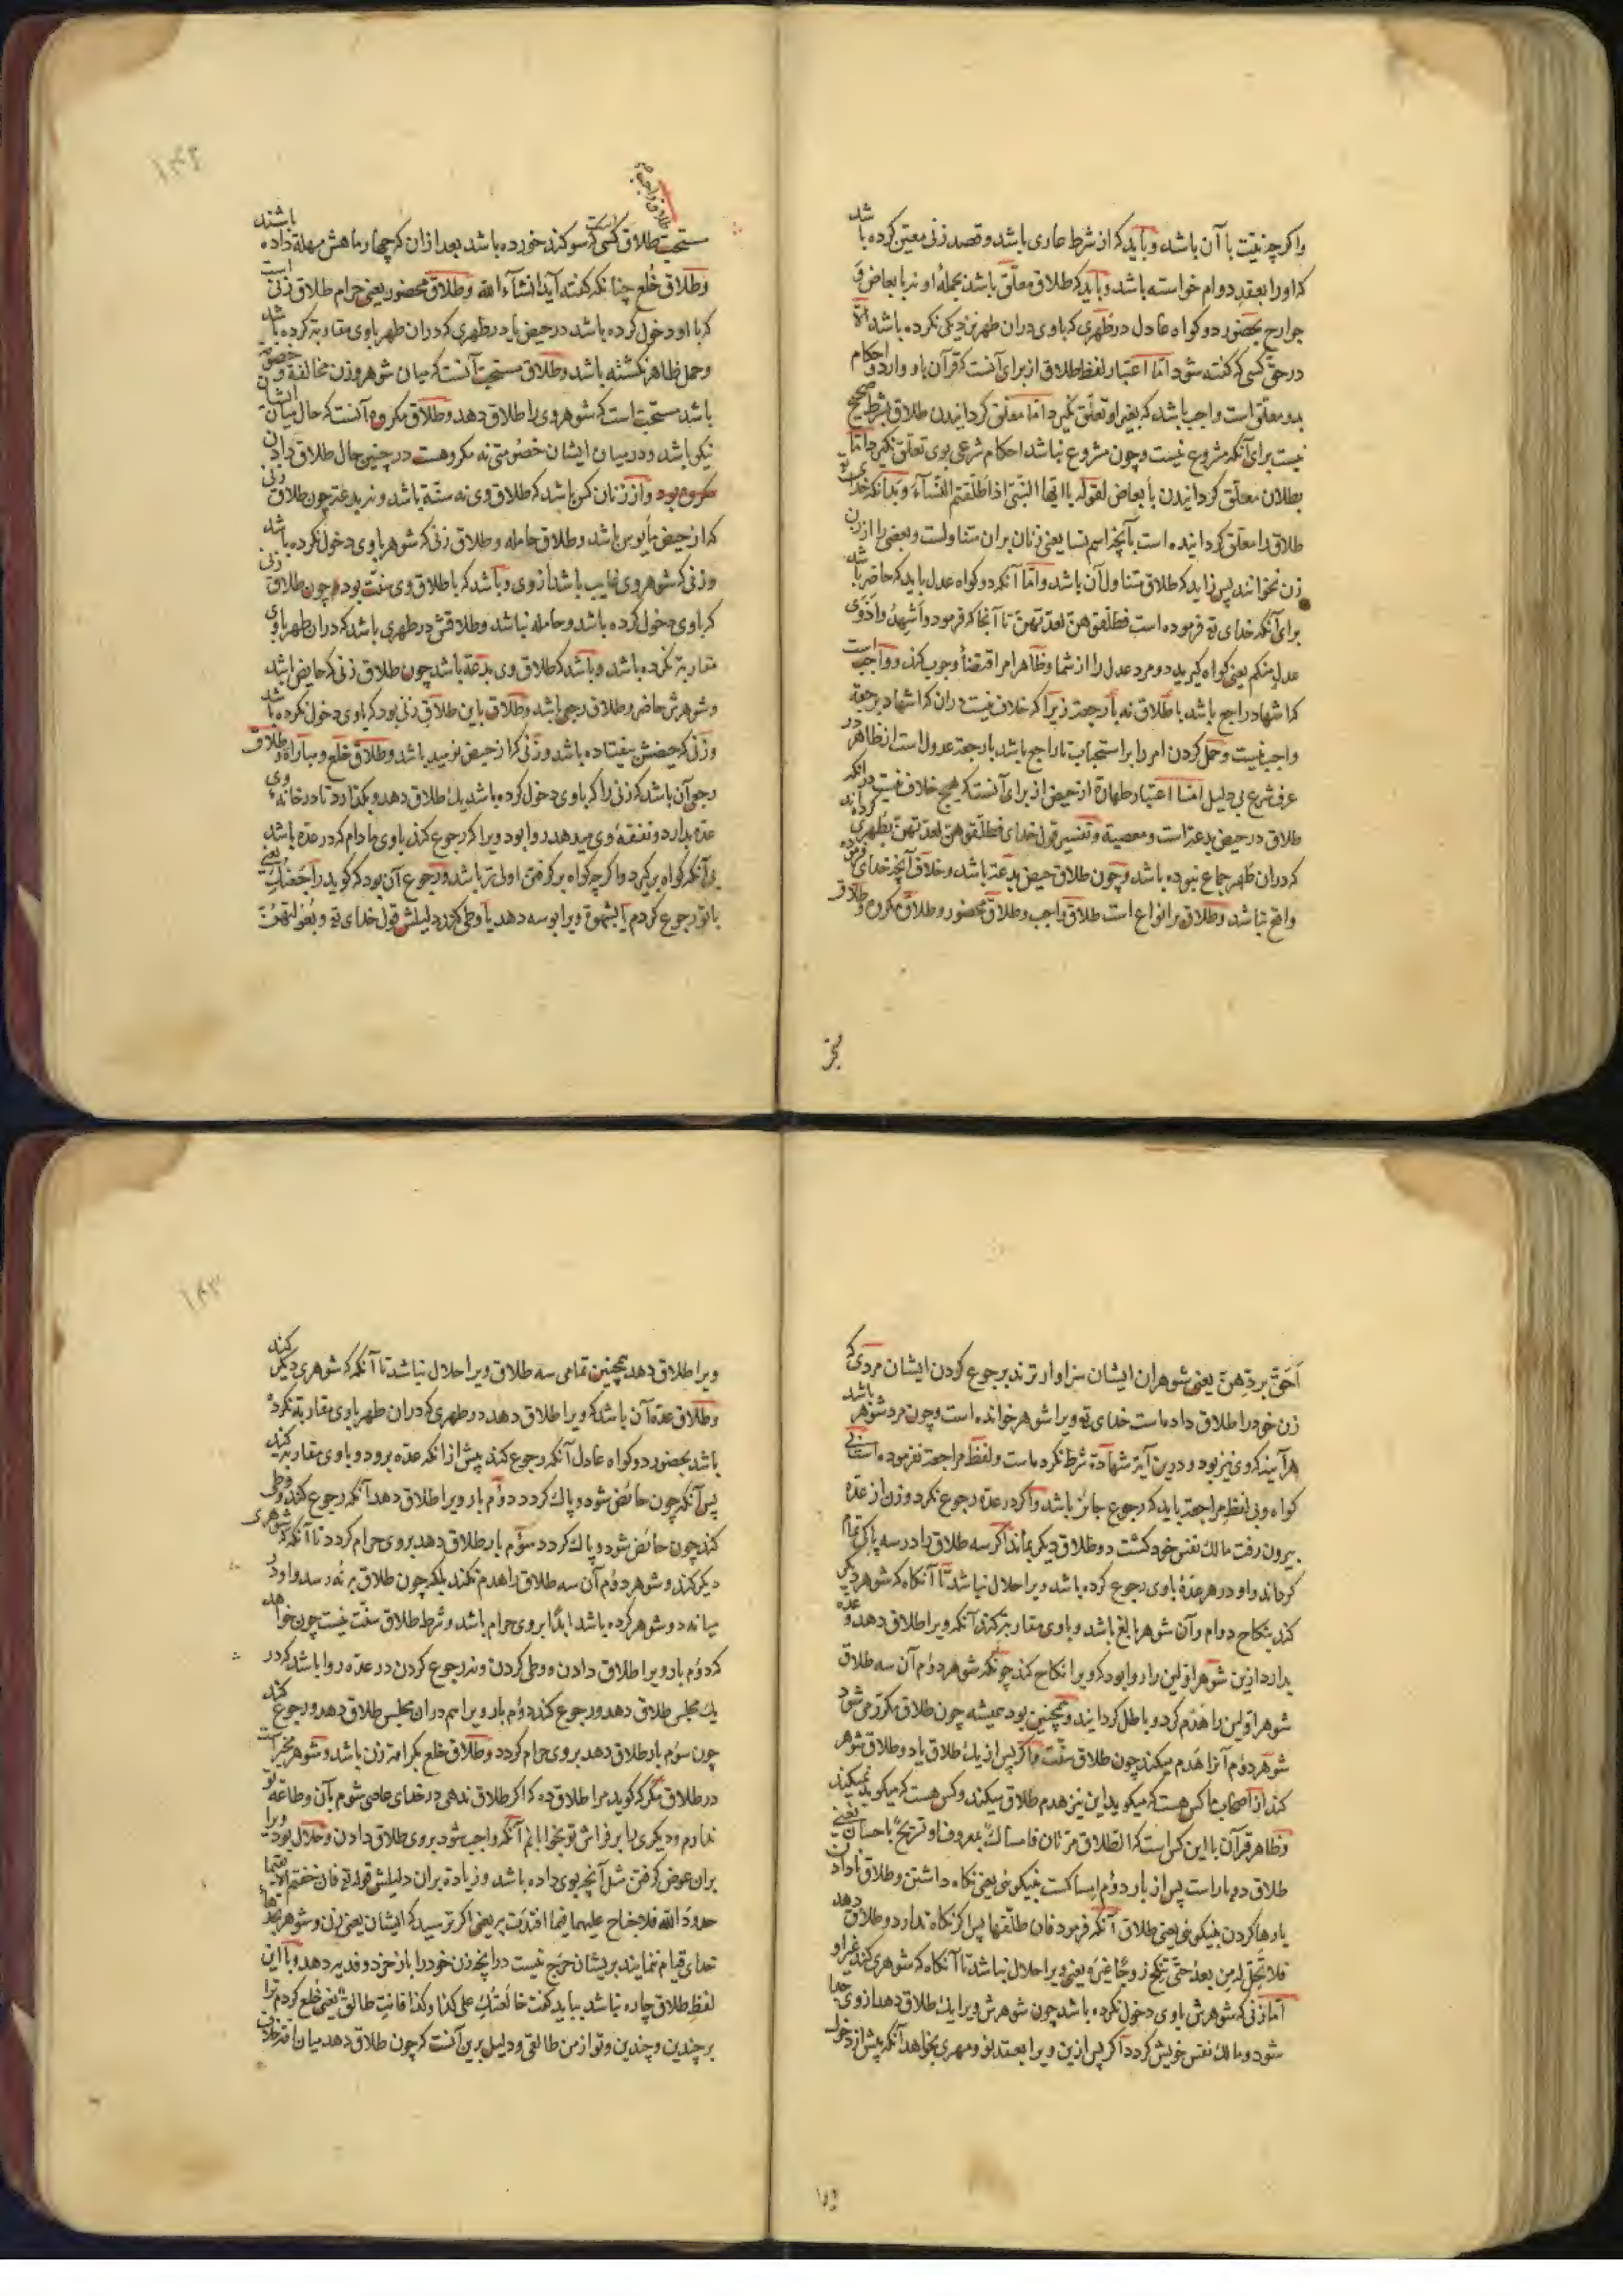 واکر چه نیّت با آن باشد و باید که از شرط عاری باشد و قصد زنی معیّن کرده باشد
که او را بعقد دوام خواسته باشد و باید که طلاق معلّق باشد بجملهٔ او نه بابعاض و
جوارح بحضور دو کواه عادل در طهری که باوی دران طهر نزدیکی نکرده باشد الا
در حق کسی که کفته شود امّا اعتبار لفظ طلاق از برای آنست که قرآن باو وارد و احکام
بدو معلّق است واجب باشد که بغیر او تعلّق نکیرد امّا معلّق کردانیدن طلاق بشرط صحیح
نیست برای آنکه مشروع نیست و چون مشروع نباشد احکام شرعی بوی تعلّق نکیرد امّا
بطلان معلّق کردانیدن بابعاض لقوله یا ایّها النّبیّ اذا طلّقتم النّسآء و بدانکه خدای تع
طلاق را معلّق کردانیده است بآنچه اسم نسا یعنی زنان بران متناولست و بعضی را از زن
زن نخوانند پس نباید که طلاق متناول آن باشد و امّا آنکه دو کواه عدل باید که حاضر باشد
برای آنکه خدای تع فرموده است فطلّقوهنّ لعدّتهنّ تا آنجا که فرمود و اَشهِدُوا ذَوَی
عدلٍ منکم یعنی کواه کیرید دو مرد عدل را از شما و ظاهر امر اقتضأ وجوب کند و واجب است
که اشهاد راجع باشد با طلاق نه با رجعت زیرا که خلاف نیست دران که اشهاد بر رجعة
واجب نیست و حمل کردن امر را بر استحباب تا راجع باشد با رجعة عدول است از ظاهر در
عرف شرع بی دلیل امّا اعتبار طهارة از حیض از برای آنست که هیچ خلاف نیست در آنکه
طلاق در حیض بدعة است و معصیة و تفسیر قول خدای فطلّقوهنّ لعدّتهنّ بطهری کرده‌اند
که دران طُهر جماع نبوده باشد و چون طلاق حیض بدعة باشد و خلاف آنچه خدای فرموده
واقع نباشد و طلاق بر انواع است طلاق واجب و طلاق محضور و طلاق مکروه و طلاق
مستحبّ طلاق کسی است که سوکند خورده باشد بعد ازان که چهار ماهش مهلة داده باشند
و طلاق خُلع چنانکه کفته آید انشآء الله و طلاق محضور یعنی حرام طلاق زنی است
که با او دخول کرده باشد در حیض یا در طهری که دران طهر باوی مقاربة کرده باشد
و حمل ظاهر نکشته باشد و طلاق مستحبّ آنست که میان شوهر و زن مخالفة و خصومة
باشد مستحبّ است که شوهر وی را طلاق دهد و طلاق مکروه آنست که حال میان ایشان
نیکو باشد و در میان ایشان خصُومتی نه مکروهست در چنین حال طلاق دادن
مکروه بود و از زنان کس باشد که طلاق وی نه سنّة باشد و نه بدعة چون طلاق زنی
که از حیض مأیوس باشد و طلاق حامله و طلاق زنی که شوهر باوی دخول نکرده باشد
و زنی که شوهر وی غایب باشد از وی و باشد که با طلاق وی سنّت بود چون طلاق زنی
که باوی دخول کرده باشد و حامله نباشد و طلاقش در طهری باشد که دران طهر باوی
مقاربة نکرده باشد و باشد که طلاق وی بدعة باشد چون طلاق زنی که حایض باشد
و شوهرش حاضر و طلاق رجعی باشد و طلاق باین طلاق زنی بود که باوی دخول نکرده باشد
و زنی که حیضش نیفتاده باشد و زنی که از حیض نومید باشد و طلاق خلع و مبارات و طلاق
رجعی آن باشد که زنی را که باوی دخول کرده باشد یك طلاق دهد و بکذارد تا در خانه وی
عدّه بدارد و نفقهٔ وی میدهد روا بود ویرا که رجوع کند باوی مادام که در عدّه باشد
بی آنکه کواه برکیرد و اکرچه کواه برکرفتن اولی‌تر باشد و رجوع آن بود که کوید راجَعتُكِ یعنی
باتو رجوع کردم یا بشهوة ویرا بوسه دهد یا وطی کند دلیلش قول خدای تع و بُعُولَتُهُنَّ
اَحَقُّ بِرَدِّهِنَّ یعنی شوهران ایشان سزاوارترند برجوع کردن ایشان مردی که
زن خود را طلاق داده است خدای تع ویرا شوهر خوانده است و چون مرد شوهر باشد
هرآینه که وی نیز بود و درین آیة شهادة شرط نکرده است و لفظ مراجعة نفرموده است بی
کواه و بی لفظ مراجعة باید که رجوع جائز باشد و اکر در عدّه رجوع نکرد و زن از عدّه
بیرون رفت مالك نفس خود کشت و دو طلاق دیکر بماند اکر سه طلاق را در سه پاکی تمام
کرداند و او در هر عدّهٔ باوی رجوع کرده باشد ویرا حلال نباشد تا آنکاه که شوهر دیکر
کند بنکاح دوام و آن شوهر بالغ باشد و باوی مقاربة کند آنکه ویرا طلاق دهد و عدّه
بدارد ازین شوهر اوّلین را روا بود که ویرا نکاح کند چونکه شوهر دوم آن سه طلاق
شوهر اوّلین را هدم کرد و باطل کردانید و همچنین بود همیشه چون طلاق مکرّر می‌شود
شوهر دوم آنرا هدم میکند چون طلاق سنّت و اکر پس از یك طلاق یا دو طلاق شوهر
کند از اصحاب ما کس هست که میکوید این نیز هدم طلاق میکند و کس هست که میکوید نمیکند
و ظاهر قرآن با این کس است که الطّلاق مرّتان فامساك بمعروف او تسریح باحسان یعنی
طلاق دو بار است پس از بار دوم امساکست بنیکوئی یعنی نکاه داشتن و طلاق نادادن
یا رها کردن بنیکوئی یعنی طلاق آنکه فرمود فان طلّقها پس اکر نکاه ندارد و طلاق دهد
فلا تحلّ له من بعد حتّی تنکح زوجًا غیره یعنی ویرا حلال نباشد تا آنکاه که شوهری کند غیر او
امّا زنی که شوهرش باوی دخول نکرده باشد چون شوهرش ویرا یك طلاق دهد از وی جدا
شود و مالك نفس خویش کردد اکر پس ازین ویرا بعقد نو و مهری بخواهد آنکه پیش از دخول
ویرا طلاق دهد همچنین تمامی سه طلاق ویرا حلال نباشد تا آنکه که شوهری دیکر کند
و طلاق عدّه آن باشد که ویرا طلاق دهد در طهری که دران طهر باوی مقاربة نکرده
باشد بحضور دو کواه عادل آنکه رجوع کند پیش از آنکه عدّه برود و باوی مقاربة کند
پس آنکه چون حائض شود و پاك کردد دوم بار ویرا طلاق دهد آنکه رجوع کند و وطی
کند چون حائض شود و پاك کردد سوم بار طلاق دهد بر وی حرام کردد تا آنکه که شوهری
دیکر کند و شوهر دوم آن سه طلاق را هدم نکند بلکه چون طلاق بر نُه رسد و او در
میانه دو شوهر کرده باشد ابدًا بر وی حرام باشد و شرط طلاق سنّت نیست چون خواهد
که دوم بار ویرا طلاق دادن و وطی کردن و نه رجوع کردن در عدّه روا باشد که در
یك مجلس طلاق دهد و رجوع کند دوم بار ویرا هم دران مجلس طلاق دهد و رجوع کند
چون سوم بار طلاق دهد بر وی حرام کردد و طلاق خلع بکراهة زن باشد و شوهر مخیّر است
در طلاق مکر که کوید مرا طلاق ده که اکر طلاق ندهی در خدای عاصی شوم بآن و طاعة تو
ندارم و دیکری را بر فراش تو بخوابانم آنکه واجب شود بر وی طلاق دادن و حلال بود ویرا
بران عوض کرفتن مثل آنچه بوی داده باشد و زیادة بران دلیلش قوله تع فان خفتم الّا یقیما
حدود الله فلا جناح علیهما فیما افتدت به یعنی اکر ترسید که ایشان یعنی زن و شوهر بحدّها
خدای قیام ننمایند بریشان حرج نیست در آنچه زن خود را باز خرد و فدیه دهد و با این
لفظ طلاق چاره نباشد بباید کفت خالعتُكِ علی کذا و کذا فانتِ طالق یعنی خلع کردم ترا
بر چندین و چندین و تو از من طالقی و دلیل برین آنست که چون طلاق دهد میان